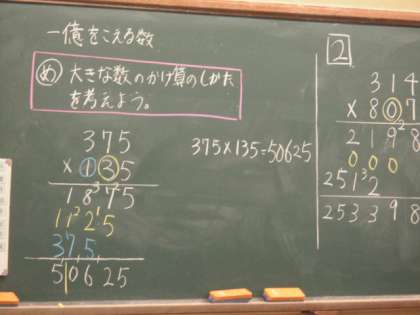 一億をこえる数
め 大きな数のかけ算のしかた
を考えよう。
375
×135
1875
1125
375
50625
375×135=50625
2
314
×807
2198
000
2512
253398